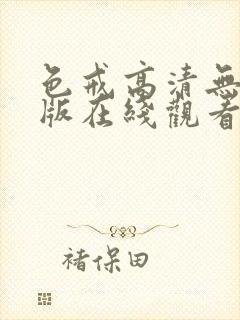 色戒高清無
版在綫觀看
褚保田